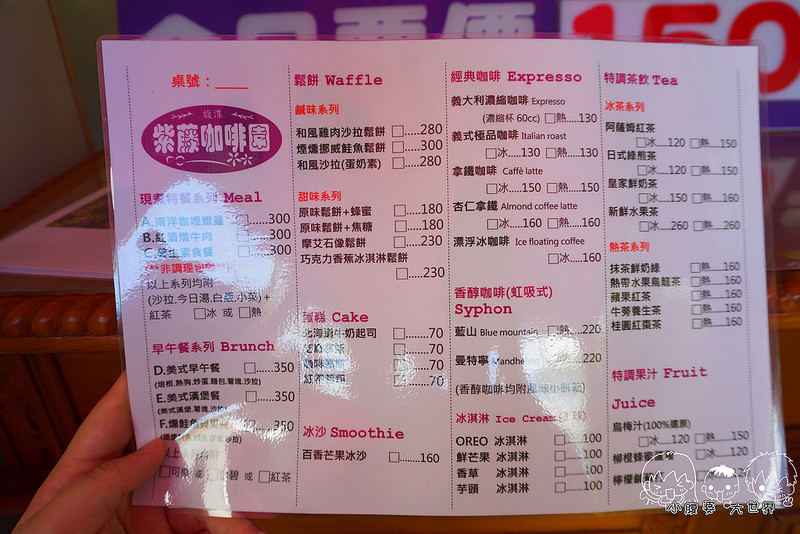 150
桌號：____
馥漾
紫藤咖啡園
現煮特餐系列 Meal
A.南洋咖哩嫩雞 □......300
B.紅酒燉牛肉 □......300
□......300
以上系列均附
(沙拉.今日湯.白飯.小菜)+
紅茶 □冰 或 □熱
早午餐系列 Brunch
D.美式早午餐 □......350
(培根.熱狗.炒蛋.麵包.薯塊.沙拉)
E.美式漢堡餐 □......350
(美式漢堡.薯塊.沙拉)
350
或 □紅茶
鬆餅 Waffle
鹹味系列
和風雞肉沙拉鬆餅 □......280
煙燻挪威鮭魚鬆餅 □......300
和風沙拉(蛋奶素) □......280
甜味系列
原味鬆餅+蜂蜜 □......180
原味鬆餅+焦糖 □......180
摩艾石像鬆餅 □......230
巧克力香蕉冰淇淋鬆餅
□......230
蛋糕 Cake
北海道牛奶起司 □......70
□......70
□......70
□......70
冰沙 Smoothie
百香芒果冰沙 □........160
經典咖啡 Expresso
義大利濃縮咖啡 Expresso
(濃縮杯 60cc) □熱.....130
義式極品咖啡 Italian roast
□冰.....130 □熱.....130
拿鐵咖啡 Caffè latte
□冰.....150 □熱.....150
杏仁拿鐵 Almond coffee latte
□冰.....160 □熱.....160
漂浮冰咖啡 Ice floating coffee
□冰.....160
香醇咖啡(虹吸式)
Syphon
藍山 Blue mountain □熱.....220
曼特寧 Mandheling 220
(香醇咖啡均附
冰淇淋 Ice Cream
OREO 冰淇淋 □......100
鮮芒果 冰淇淋 □......100
香草 冰淇淋 □......100
芋頭 冰淇淋 □......100
特調茶飲 Tea
冰茶系列
阿薩姆紅茶
□冰.....120 □熱.....150
日式綠煎茶
□冰.....120 □熱.....160
皇家鮮奶茶
□冰.....150 □熱.....160
新鮮水果茶
□冰.....260 □熱.....260
熱茶系列
抹茶鮮奶綠 □熱.....160
熱帶水果烏龍茶 □熱.....160
蘋果紅茶 □熱.....160
牛蒡養生茶 □熱.....160
桂圓紅棗茶 □熱.....160
特調果汁 Fruit
Juice
烏梅汁(100%還原)
□冰.....120 □熱.....150
檸檬蜂蜜
□冰.....120
檸檬
小腹婆 大世界